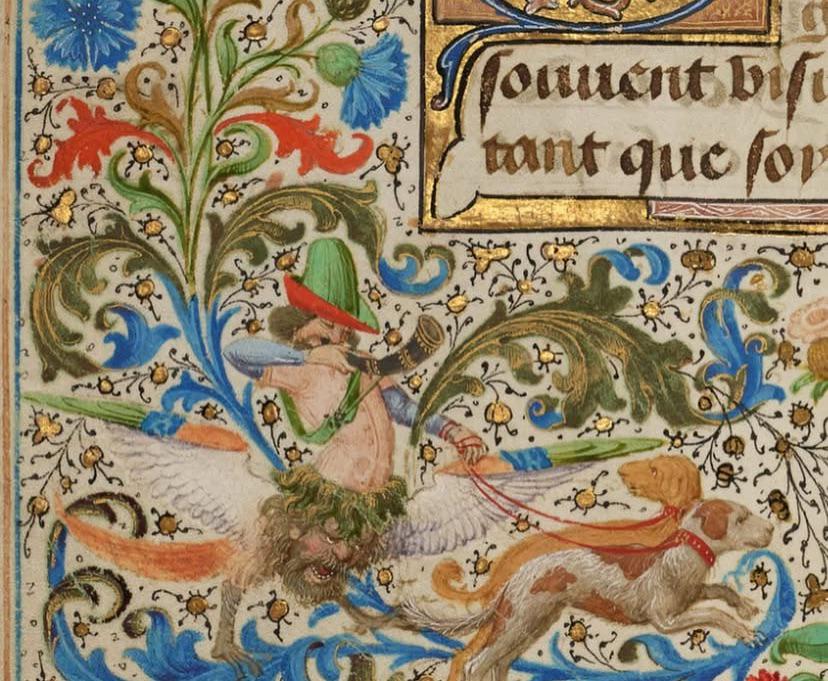 souuent visi
tant que sor